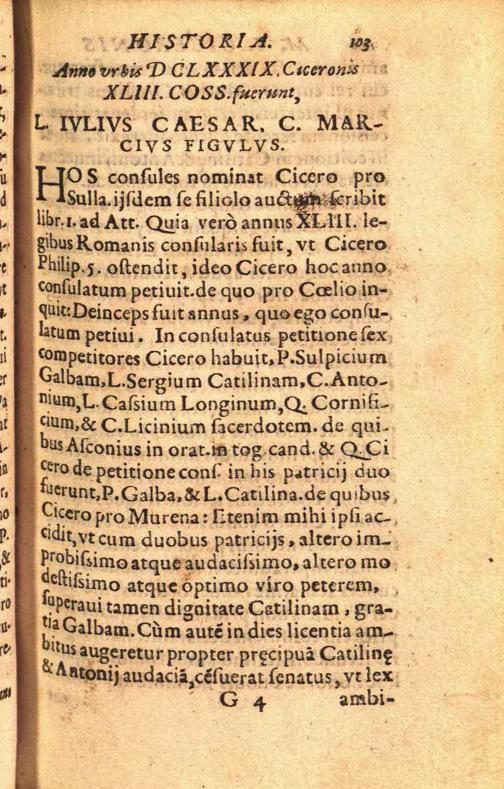 HISTORIA. 103
Anno vrbis DCLXXXIX. Ciceronis
XLIII. COSS. fuerunt,
L. IVLIVS CAESAR. C. MAR-
CIVS FIGVLVS.
HOS conſules nominat Cicero pro
Sulla. ijſdem ſe filiolo auctum ſcribit
libr. 1. ad Att. Quia verò annus XLIII. le-
gibus Romanis conſularis fuit, vt Cicero
Philip. 5. oſtendit, ideo Cicero hoc anno
conſulatum petiuit. de quo pro Cœlio in-
quit: Deinceps fuit annus, quo ego conſu-
latum petiui. In conſulatus petitione ſex
competitores Cicero habuit, P. Sulpicium
Galbam, L. Sergium Catilinam, C. Anto-
nium, L. Caſsium Longinum, Q. Cornifi-
cium, & C. Licinium ſacerdotem. de qui-
bus Aſconius in orat. in tog. cand. & Q. Ci
cero de petitione conſ. in his patricij duo
fuerunt, P. Galba, & L. Catilina. de quibus
Cicero pro Murena: Etenim mihi ipſi ac-
cidit, vt cum duobus patricijs, altero im-
probiſsimo atque audaciſsimo, altero mo
deſtiſsimo atque optimo viro peterem,
ſuperaui tamen dignitate Catilinam, gra-
tia Galbam. Cùm autẽ in dies licentia am-
bitus augeretur propter pręcipuã Catilinę
& Antonij audaciã, cẽſuerat ſenatus, vt lex
G 4 ambi-